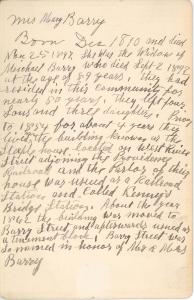 Mrs Mary Barry
Born Dec 1810 and died
Nov 25th 1892 She was the Widow of
Michael Barry who died Sept 2 1892
at the age of 89 years, they had
resided in this community for
nearly 50 years. They left four
Sons and three daughters, Prior
to 1854 for about 4 years they
lived the building known as the
Staly house, located on West River
Street adjoining the Providence
Railroad and the Parlor of this
house was used as a Railroad
Station, and called Kenney's
Bridge Station. About the year
1862 the building was moved to
Barry Street, and afterwards used as
a tenement block. Barry Street was
so named in honor of Mr & Mrs
Barry